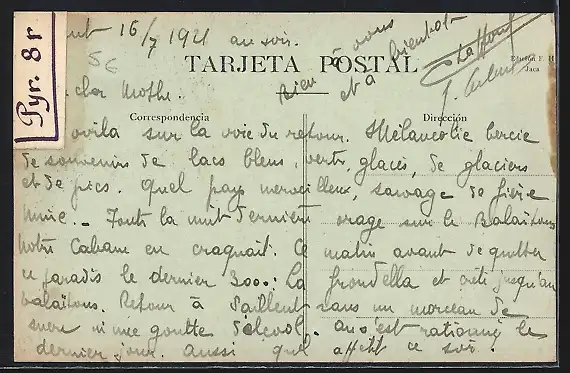 Pyr. 8r
16/7 1921 au soir.
TARJETA POSTAL
Bien à vous
et à bientôt
Edición F. H.
Jaca
cher Mothe.
Correspondencia
Dirección
voilà sur la voie du retour. Mélancolie bercée
de souvenirs de lacs bleus, verts, glacés, de glaciers
et de pics. Quel pays merveilleux, sauvage de
Toute la nuit dernière orage sur le Balaïtous
Notre Cabane en craquait. Ce matin avant de quitter
ce paradis le dernier 3000: La Frondella et crête jusqu'au
balaïtous. Retour à Sallent sans un morceau de
sucre ni une goutte d'alcool. on s'est rationné le
dernier jour. aussi quel appétit ce soir.